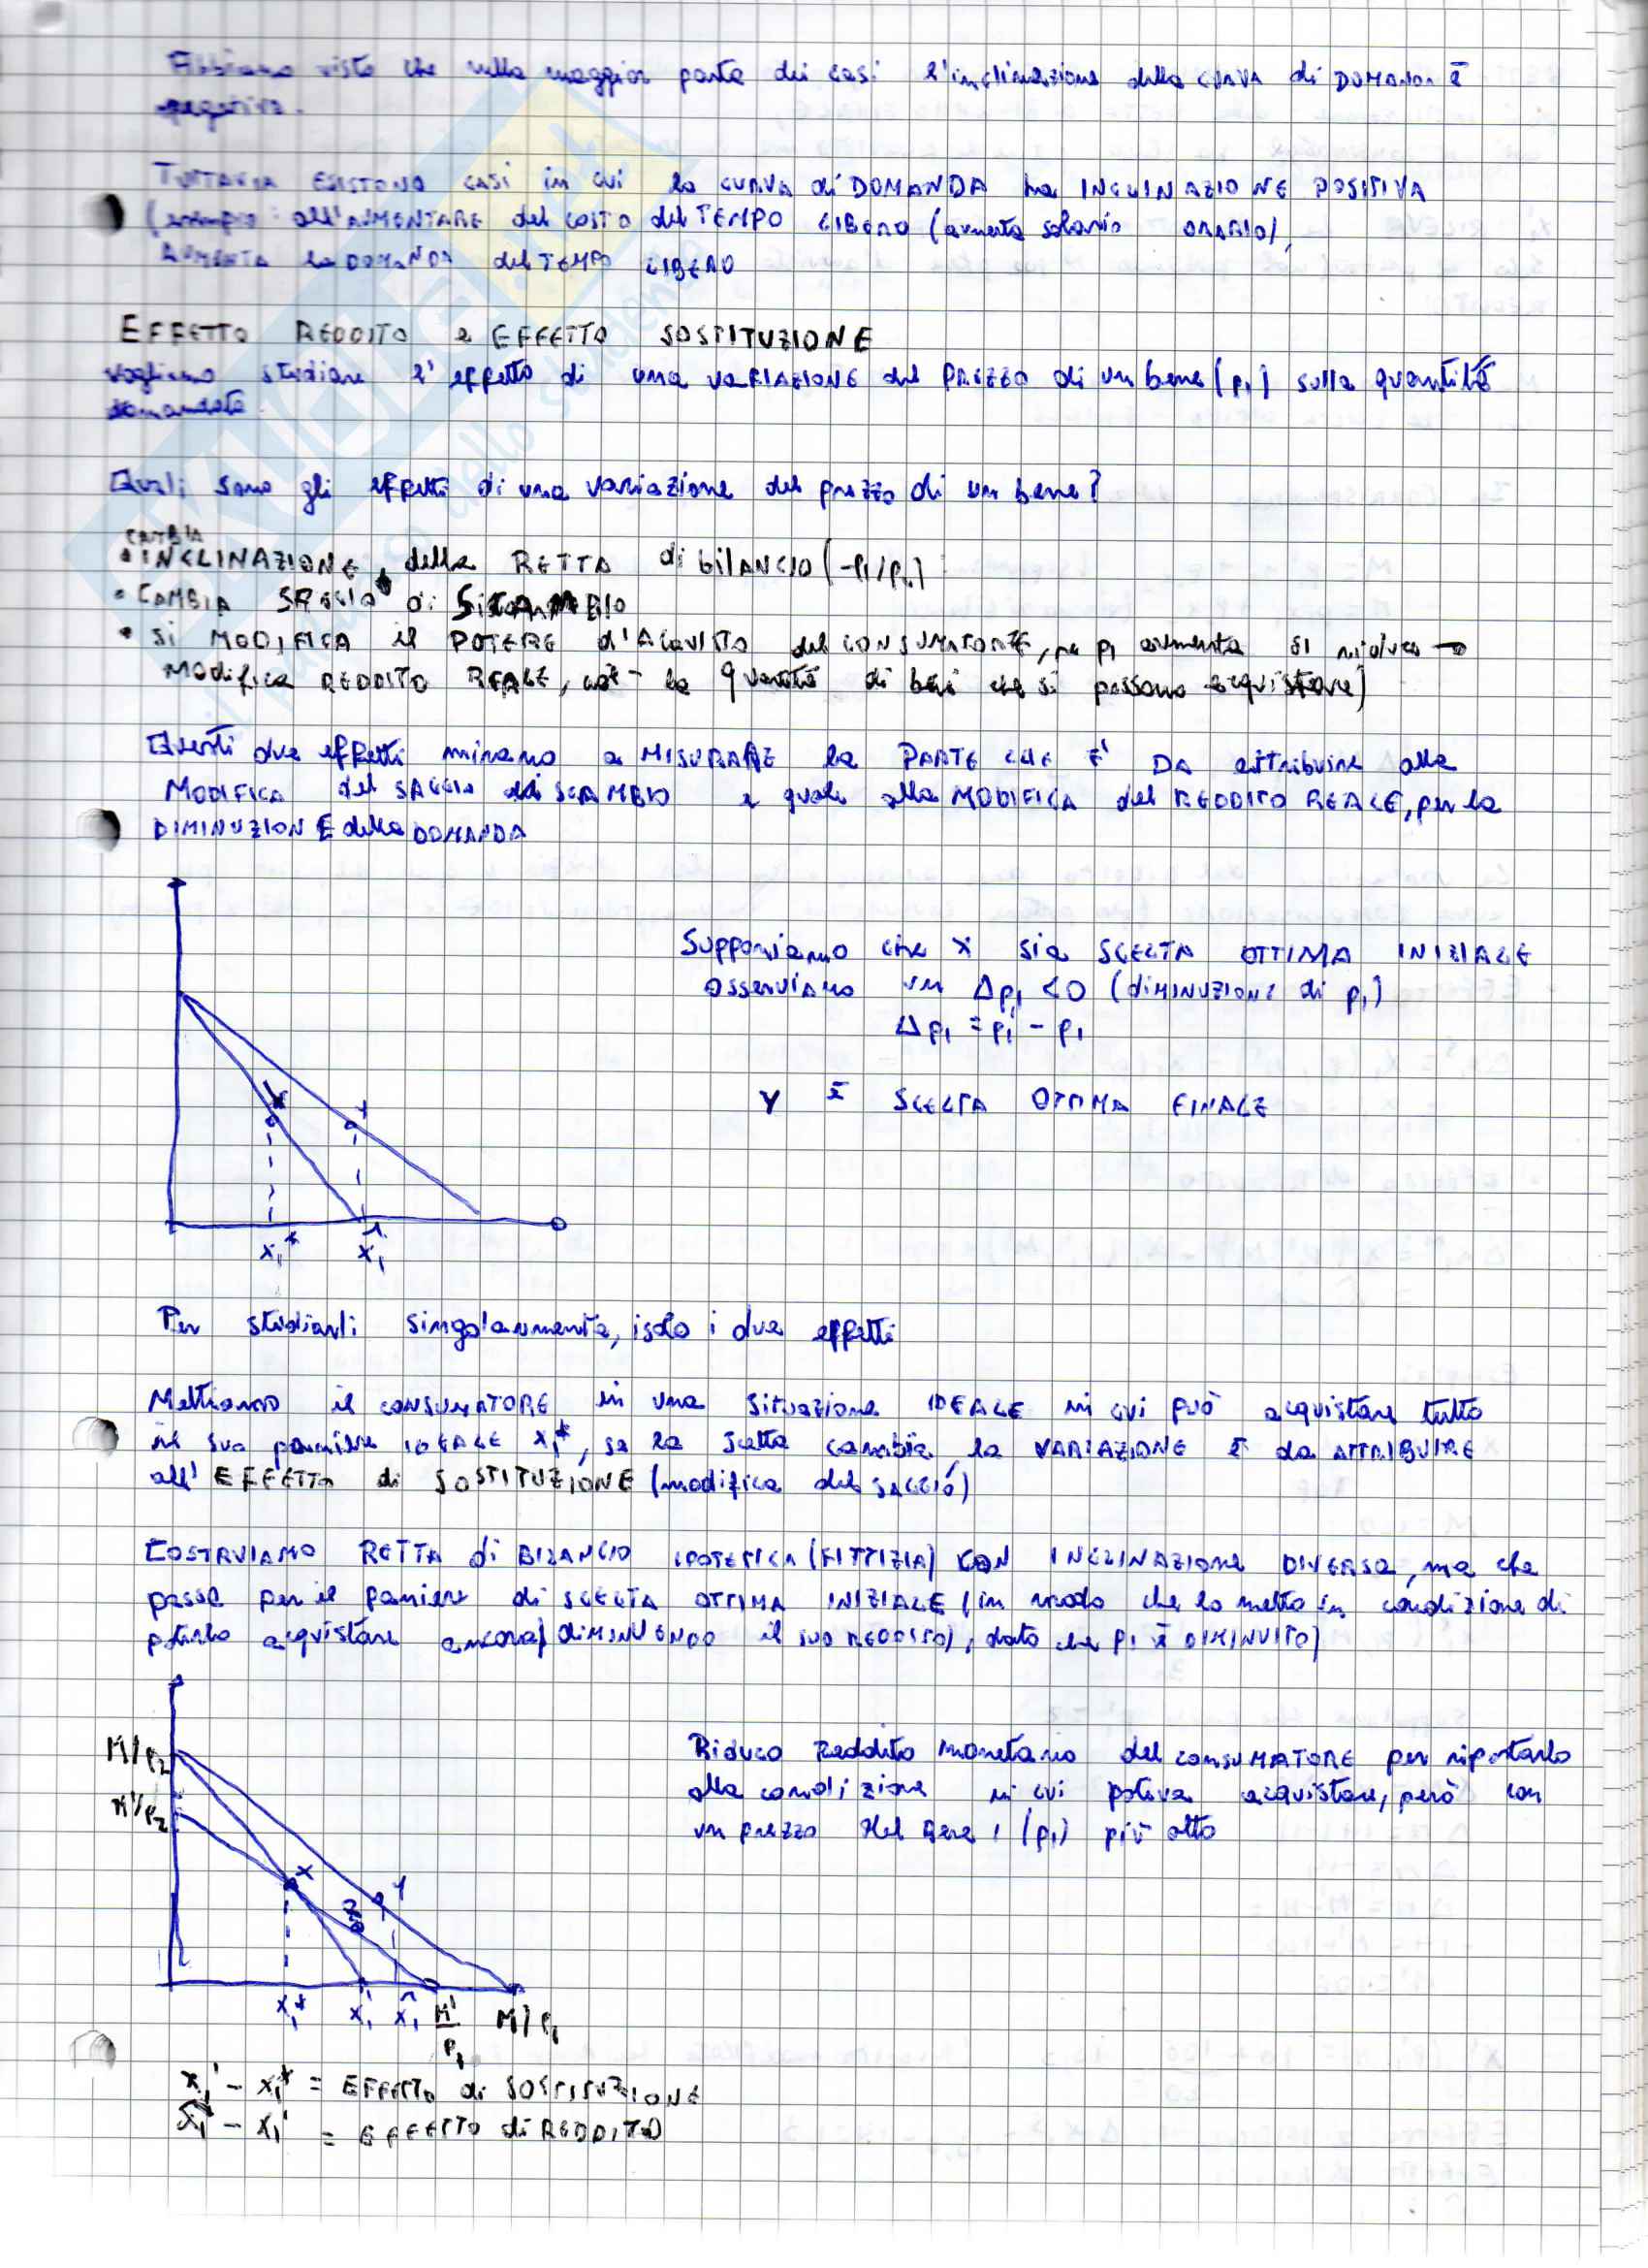 Abbiamo visto che nella maggior parte dei casi l'inclinazione della CURVA di DOMANDA è
negativa.
TUTTAVIA ESISTONO CASI in cui la CURVA di DOMANDA ha INCLINAZIONE POSITIVA
(esempio: all'AUMENTARE del COSTO del TEMPO LIBERO (aumenta salario ORARIO),
AUMENTA la DOMANDA del TEMPO LIBERO
EFFETTO REDDITO e EFFETTO SOSTITUZIONE
vogliamo studiare l'effetto di una VARIAZIONE del PREZZO di un bene (p1) sulla quantità
domandata.
Quali sono gli effetti di una variazione del prezzo di un bene?
CAMBIA
• INCLINAZIONE della RETTA di bilANCIO (-p1/p2)
• CAMBIA SAGGIO di SCAMBIO
• SI MODIFICA il POTERE d'ACQUISTO del CONSUMATORE, se p1 aumenta si riduce →
Modifica REDDITO REALE, cioè la quantità di beni che si possono acquistare)
Questi due effetti mirano a MISURARE la PARTE CHE E' DA attribuire alla
MODIFICA del SAGGIO di SCAMBIO e quale alla MODIFICA del REDDITO REALE, per la
DIMINUZIONE della DOMANDA
Supponiamo che X sia SCELTA OTTIMA INIZIALE
osserviamo un Δp1 <0 (diMINUZIONE di p1)
Δp1 = p1' - p1
Y è SCELTA OTTIMA FINALE
X Y
x1* x̂1
Per studiarli singolarmente, isolo i due effetti
Mettiamo il CONSUMATORE in una situazione IDEALE in cui può acquistare tutto
il suo paniere IDEALE x1*, se la scelta cambia, la VARIAZIONE è da ATTRIBUIRE
all'EFFETTO di SOSTITUZIONE (modifica del SAGGIO)
COSTRUIAMO RETTA di BILANCIO IPOTETICA (FITTIZIA) CON INCLINAZIONE DIVERSA, ma che
passa per il paniere di SCELTA OTTIMA INIZIALE (in modo che lo metto in condizione di
poterlo acquistare ancora) DIMINUENDO il suo REDDITO), dato che p1 è DIMINUITO)
M/p2
M'/p2
Riduco Reddito monetario del CONSUMATORE per riportarlo
alla condizione in cui poteva acquistare, però con
un prezzo del Bene 1 (p1) più alto
X Z Y
x1* x1' x̂1 M'/p1 M/p1
x1' - x1* = EFFETTO di SOSTITUZIONE
x̂1 - x1' = EFFETTO di REDDITO